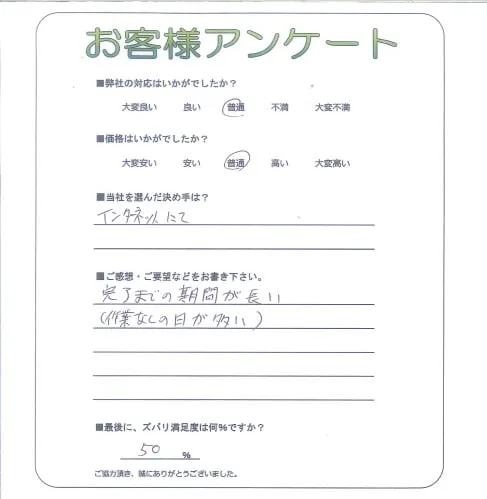 お客様アンケート
■弊社の対応はいかがでしたか？
大変良い 良い 普通 不満 大変不満
■価格はいかがでしたか？
大変安い 安い 普通 高い 大変高い
■当社を選んだ決め手は？
インターネットにて
■ご感想・ご要望などをお書き下さい。
完了までの期間が長い
(作業なしの日が多い)
■最後に、ズバリ満足度は何%ですか？
50 %
ご協力頂き、誠にありがとうございました。